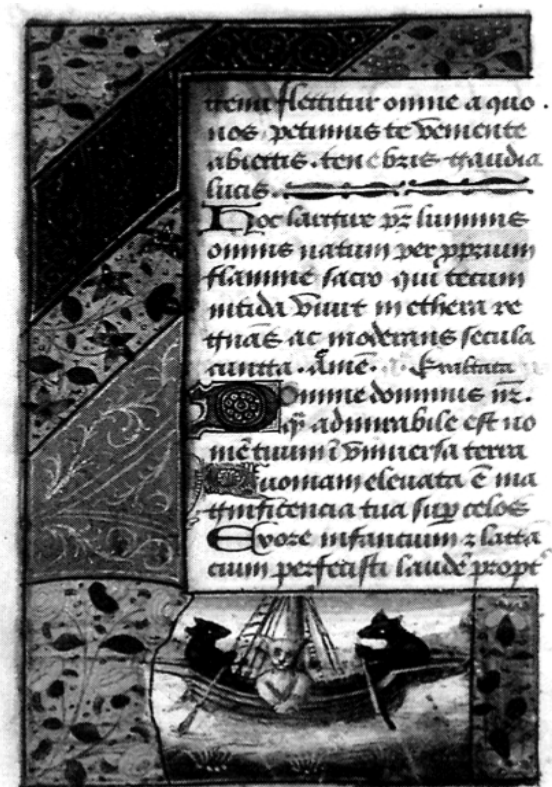 tiena flectitur omne a quo .
nos petimus te veniente
abiectis . tenebris gaudia
lucis .
Hoc largire pr̄ luminis
omnis natum per p̄prium
flamine sacro qui tecum
nitida vivit in ethera re
gnās ac moderans secula
cuncta . Amē . Exaltata
Domine dominus nr̄ .
q̄ admirabile est no
mē tuum ī universa terra
Quoniam elevata ē ma
gnificencia tua sup celos
Ex ore infancium ⁊ lacta
cium perfecisti laudē propt